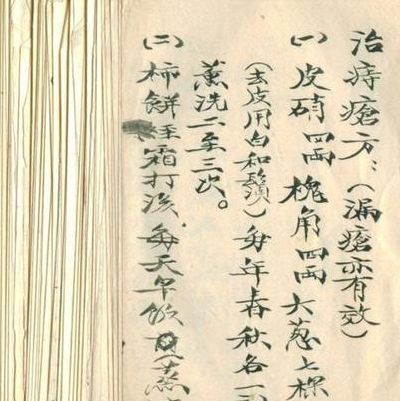 治痔瘡方:(漏瘡亦有效)
(一)皮硝四両槐角四両大葱七棵
(去皮用白和鬚)每年春秋各一
薰洗二至三次。
(二)柿餅経霜打後每天早飲